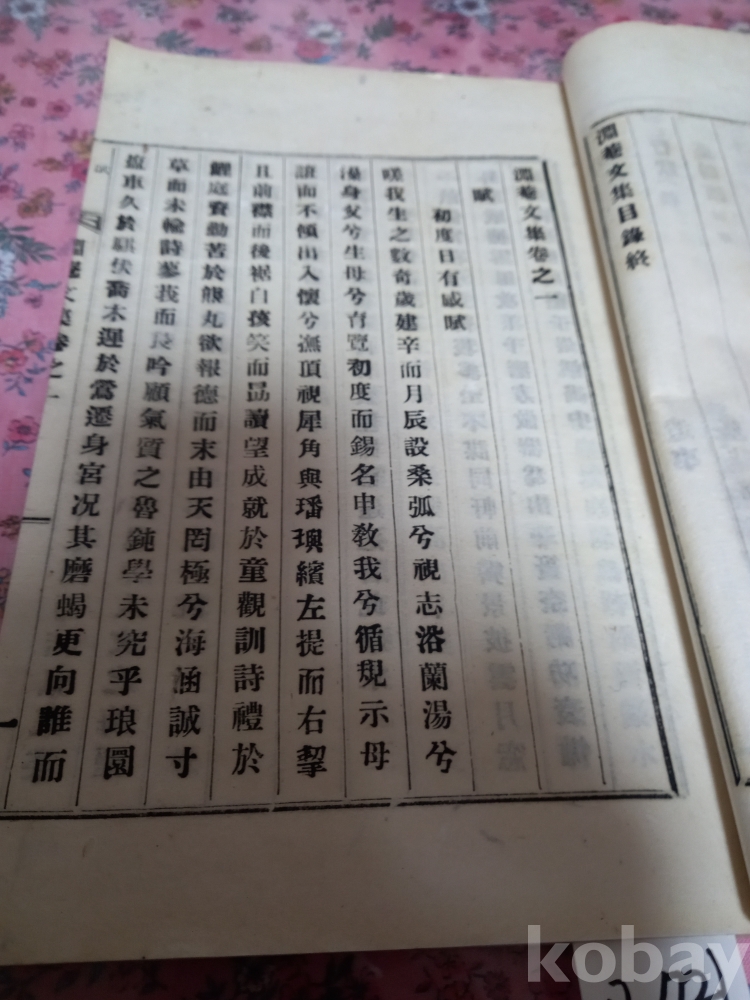 淵菴文集目錄終
淵菴文集卷之一
賦
初度日有感賦
嗟我生之數奇歲建辛而月辰設桑弧兮視志浴蘭湯兮
澡身父兮生母兮育覽初度而錫名申敎我兮循規示母
誑而不傾出入懷兮撫頂視犀角與璠璵繽左提而右挈
且前襟而後裾自孩笑而勗讀望成就於童觀訓詩禮於
鯉庭賚勤苦於熊丸欲報德而末由天罔極兮海涵誠寸
草而未輸詩蓼莪而長吟顧氣質之魯鈍學未究乎琅圜
鹽車久於驥伏喬木遲於鶯遷身宮况其磨蝎更向誰而
淵菴文集卷之一
一
kobay